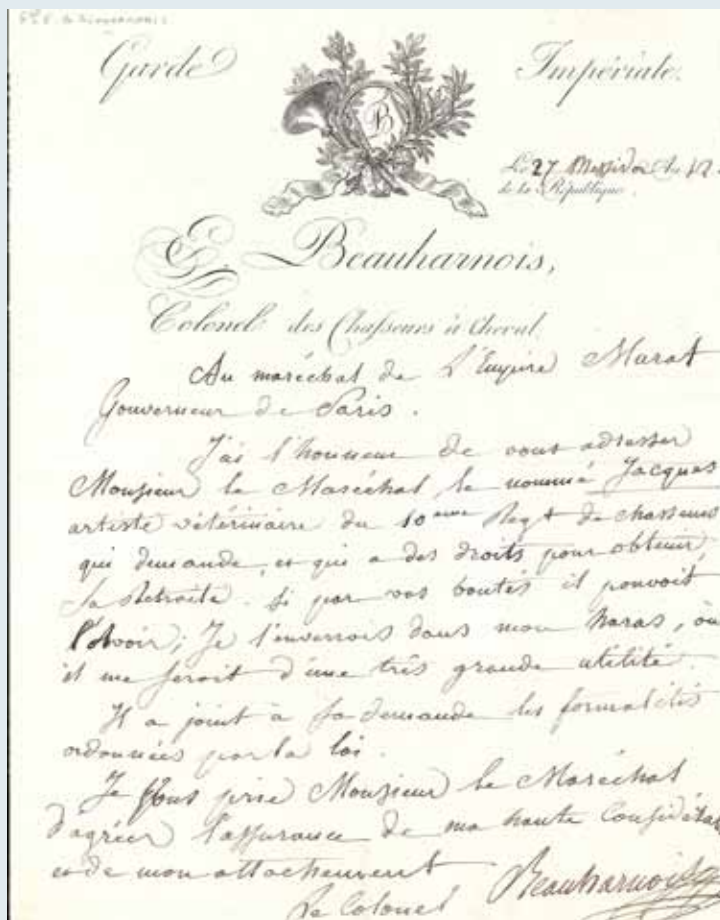 Garde Impériale.
Le 27 Messidor An 12.
de la République
E. Beauharnois,
B
Colonel des Chasseurs à Cheval.
Au maréchal de L'Empire Murat
Gouverneur de Paris.
J'ai l'honneur de vous adresser
Monsieur le Maréchal le nommé Jacques
artiste vétérinaire du 10eme Regt de chasseurs
qui demande, et qui a des droits pour obtenir,
Sa Retraite. Si par vos bontés il pouvoit
l'avoir; Je l'enverrois dans mon haras, où
il me seroit d'une très grande utilité.
Il a joint à sa demande les formalités
ordonnées par la loi.
Je Vous prie Monsieur le Maréchal
d'agréer l'assurance de ma haute Considérat
et de mon attachement
Le Colonel Beauharnois